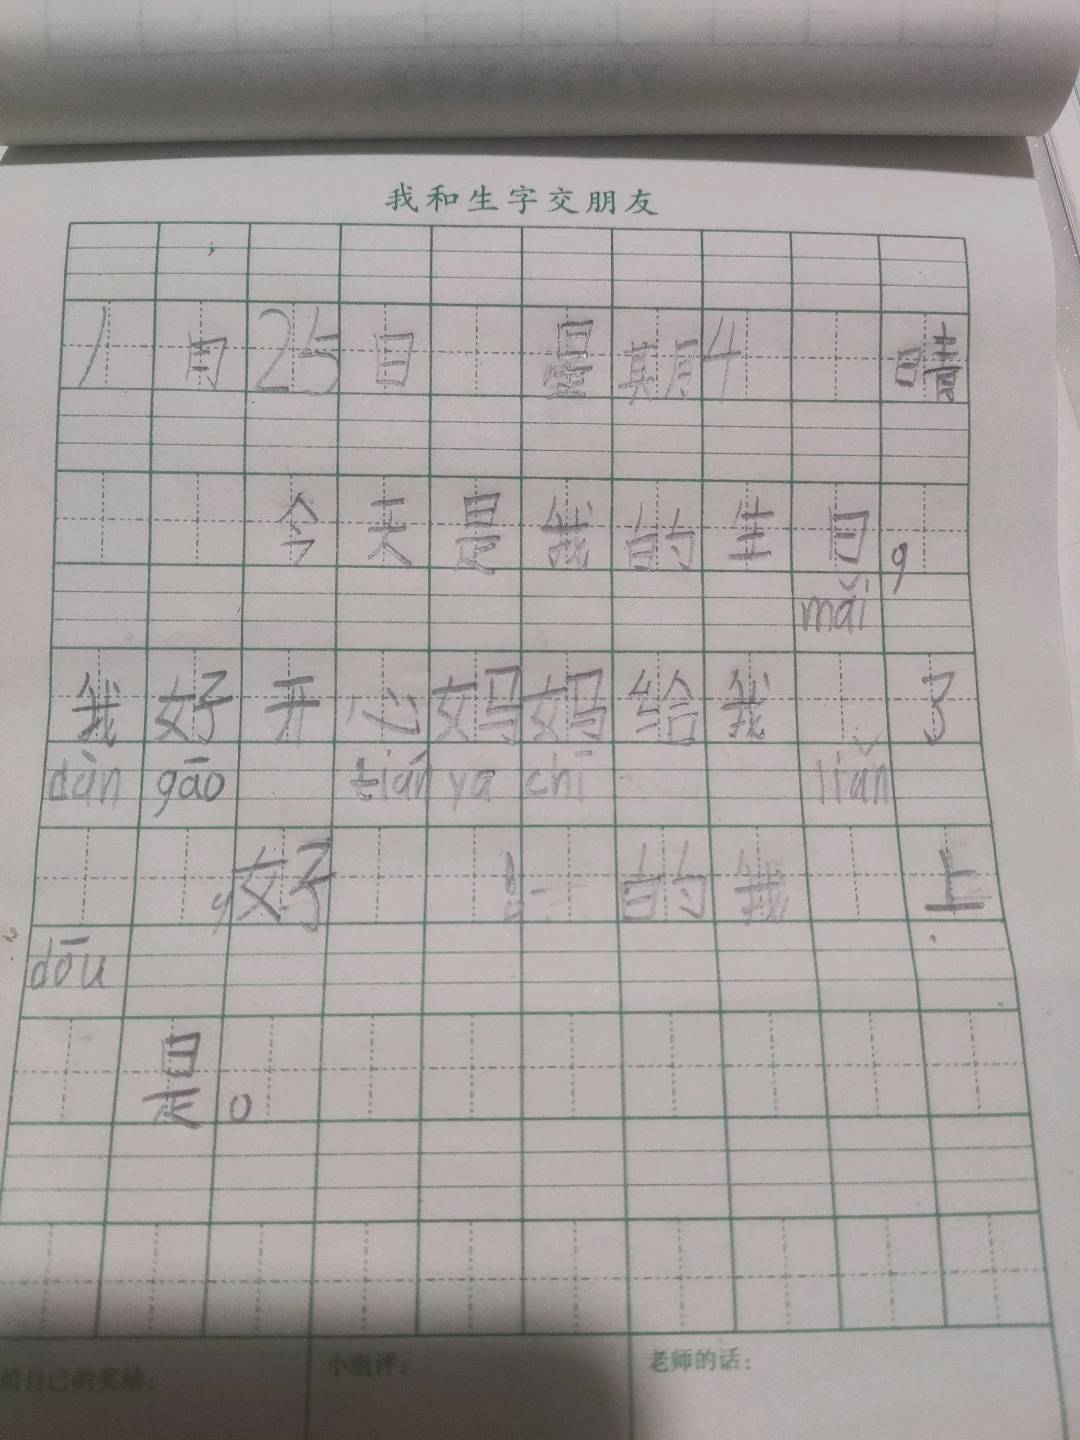 我和生字交朋友
1月25日 星期4 晴
今天是我的生日,
mǎi
我好开心妈妈给我 了
dàn gāo tián ya chī liǎn
,好 的我 上
dōu
是。
给自己的奖励: 小组评: 老师的话: